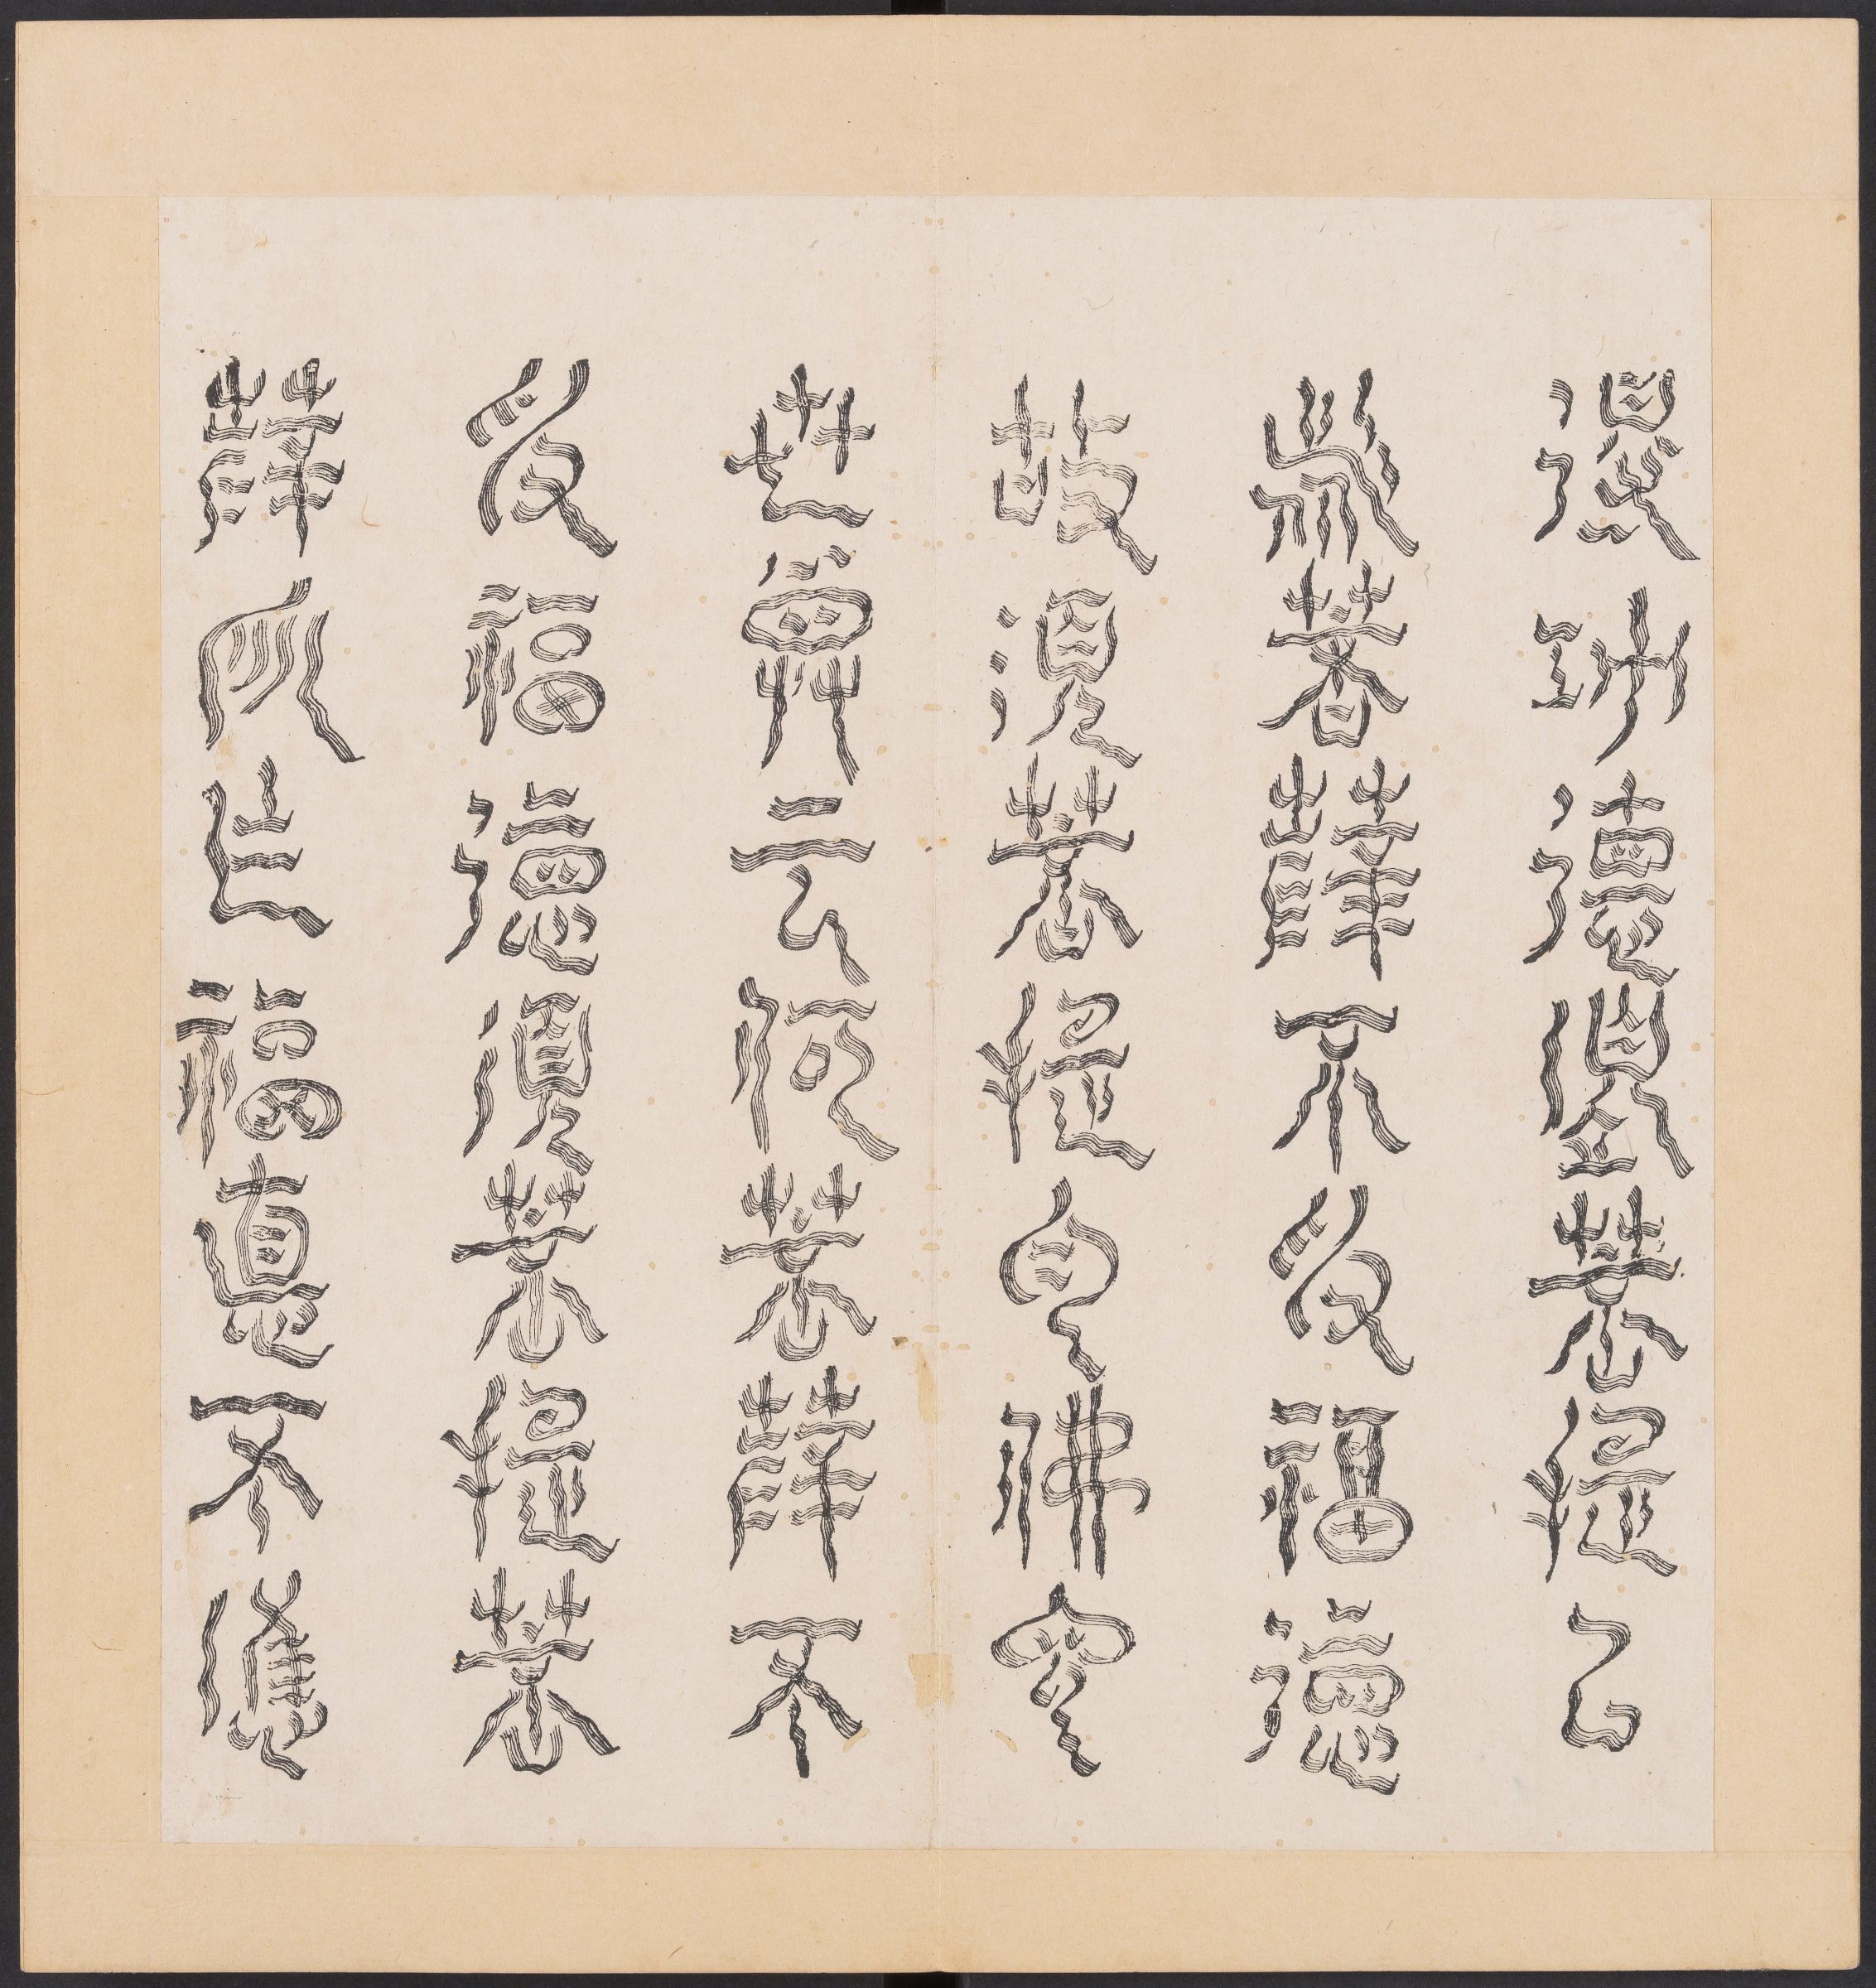 得功德須菩提以
諸菩薩不受福德
故須菩提白佛言
世尊云何菩薩不
受福德須菩提菩
薩所作福德不應